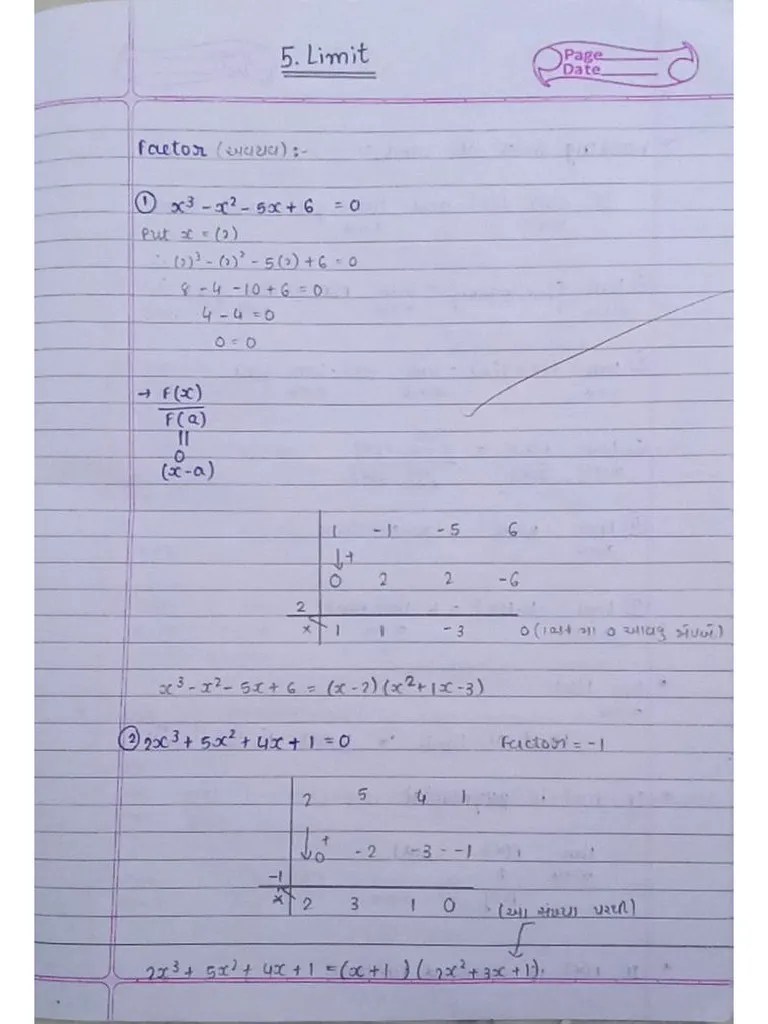 5. Limit
Page
Date
Factor (અવયવ) :-
① x³ - x² - 5x + 6 = 0
Put x = (2)
∴ (2)³ - (2)² - 5(2) + 6 = 0
8 - 4 - 10 + 6 = 0
4 - 4 = 0
0 = 0
→ F(x)
F(a)
||
0
(x-a)
1 -1 -5 6
↓+
0 2 2 -6
2
x 1 1 -3 0 ( 0 આવવુ
x³ - x² - 5x + 6 = (x-2) (x² + 1x - 3)
② 2x³ + 5x² + 4x + 1 = 0 Factor = -1
2 5 4 1
↓+
0 -2 -3 -1
-1
x 2 3 1 0 (આ સંખ્યા પરથી)
2x³ + 5x² + 4x + 1 = (x+1) (2x² + 3x + 1).